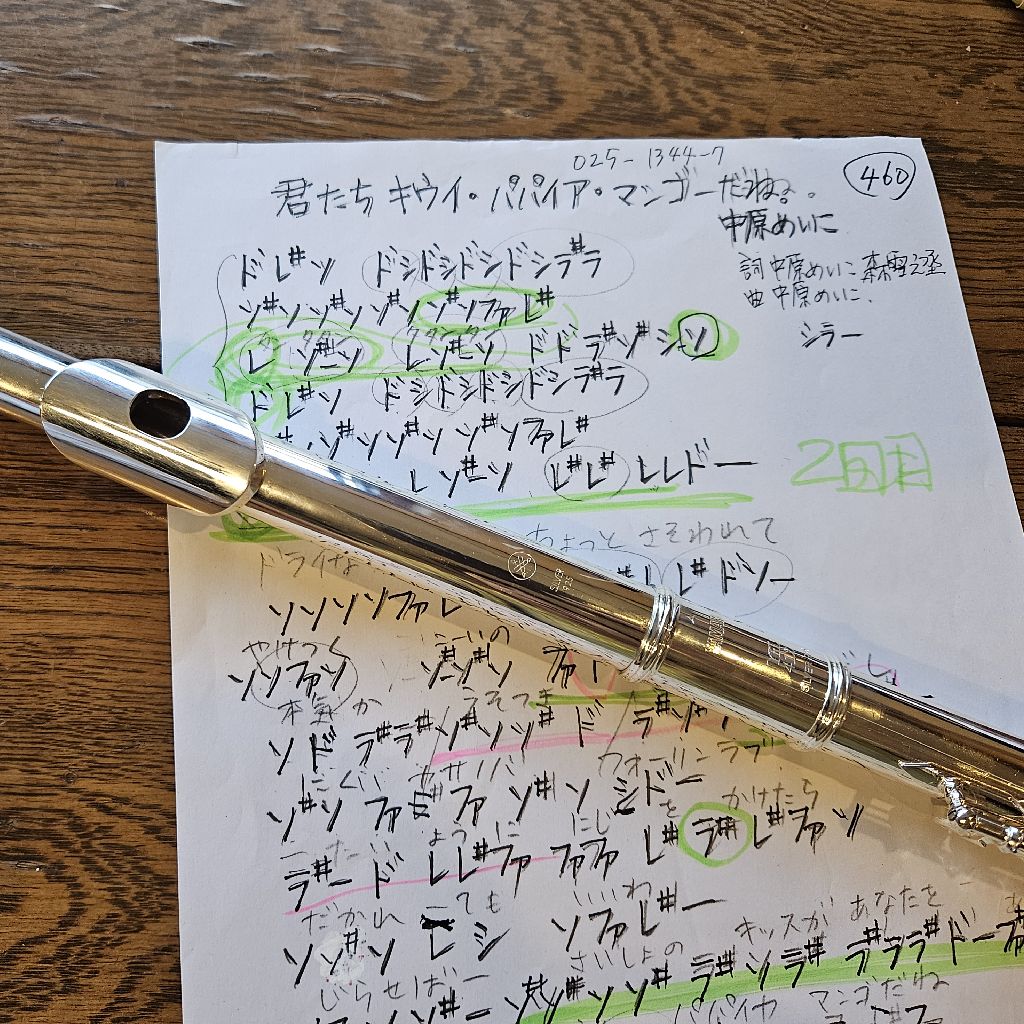 025-1344-7
460
君たち キウイ・パパイア・マンゴーだね。
中原めいこ
詞 中原めいこ 森雪之丞
曲 中原めいこ
シラー
ド レ# ソ ドシドシドシドシラ#ラ
ソ#ソソ#ソソ#ソ ソ#ソファレ#
レ ソ#ーソ レソ#ーソ ドドラ#ソ#シソ
ド レ# ソ ドシドシドシドシラ#ラ
ソ#ソソ#ソ ソ#ソファレ#
レ ソ#ーソ レ#レ# レレドー
2回目
ちょっと さそわれて
ドライな
レ# ドソー
ソソソソファレ
やけつく
ソソファソ ソ#ーソ#ソ ファ
本気 か うそつき
ソ ド ラ#ラ#ソ#ソソ# ド ラ#ソ#
にくい フォーリンラブ
ソ#ソ ファミ#ファ ソ#ソ シドー
ように にじ を かけたら
ラ#ード レレ#ファ ファファ レ# ラ# レ#ファソ
だかれ ても いいわ
ソソ#ソ レ シ ソファレ#ー
じらせばー さいしょの キッスが あなたを
ソソ# ラ#ソラ# ラ#ララ#ドー
パパイヤ マンゴだね